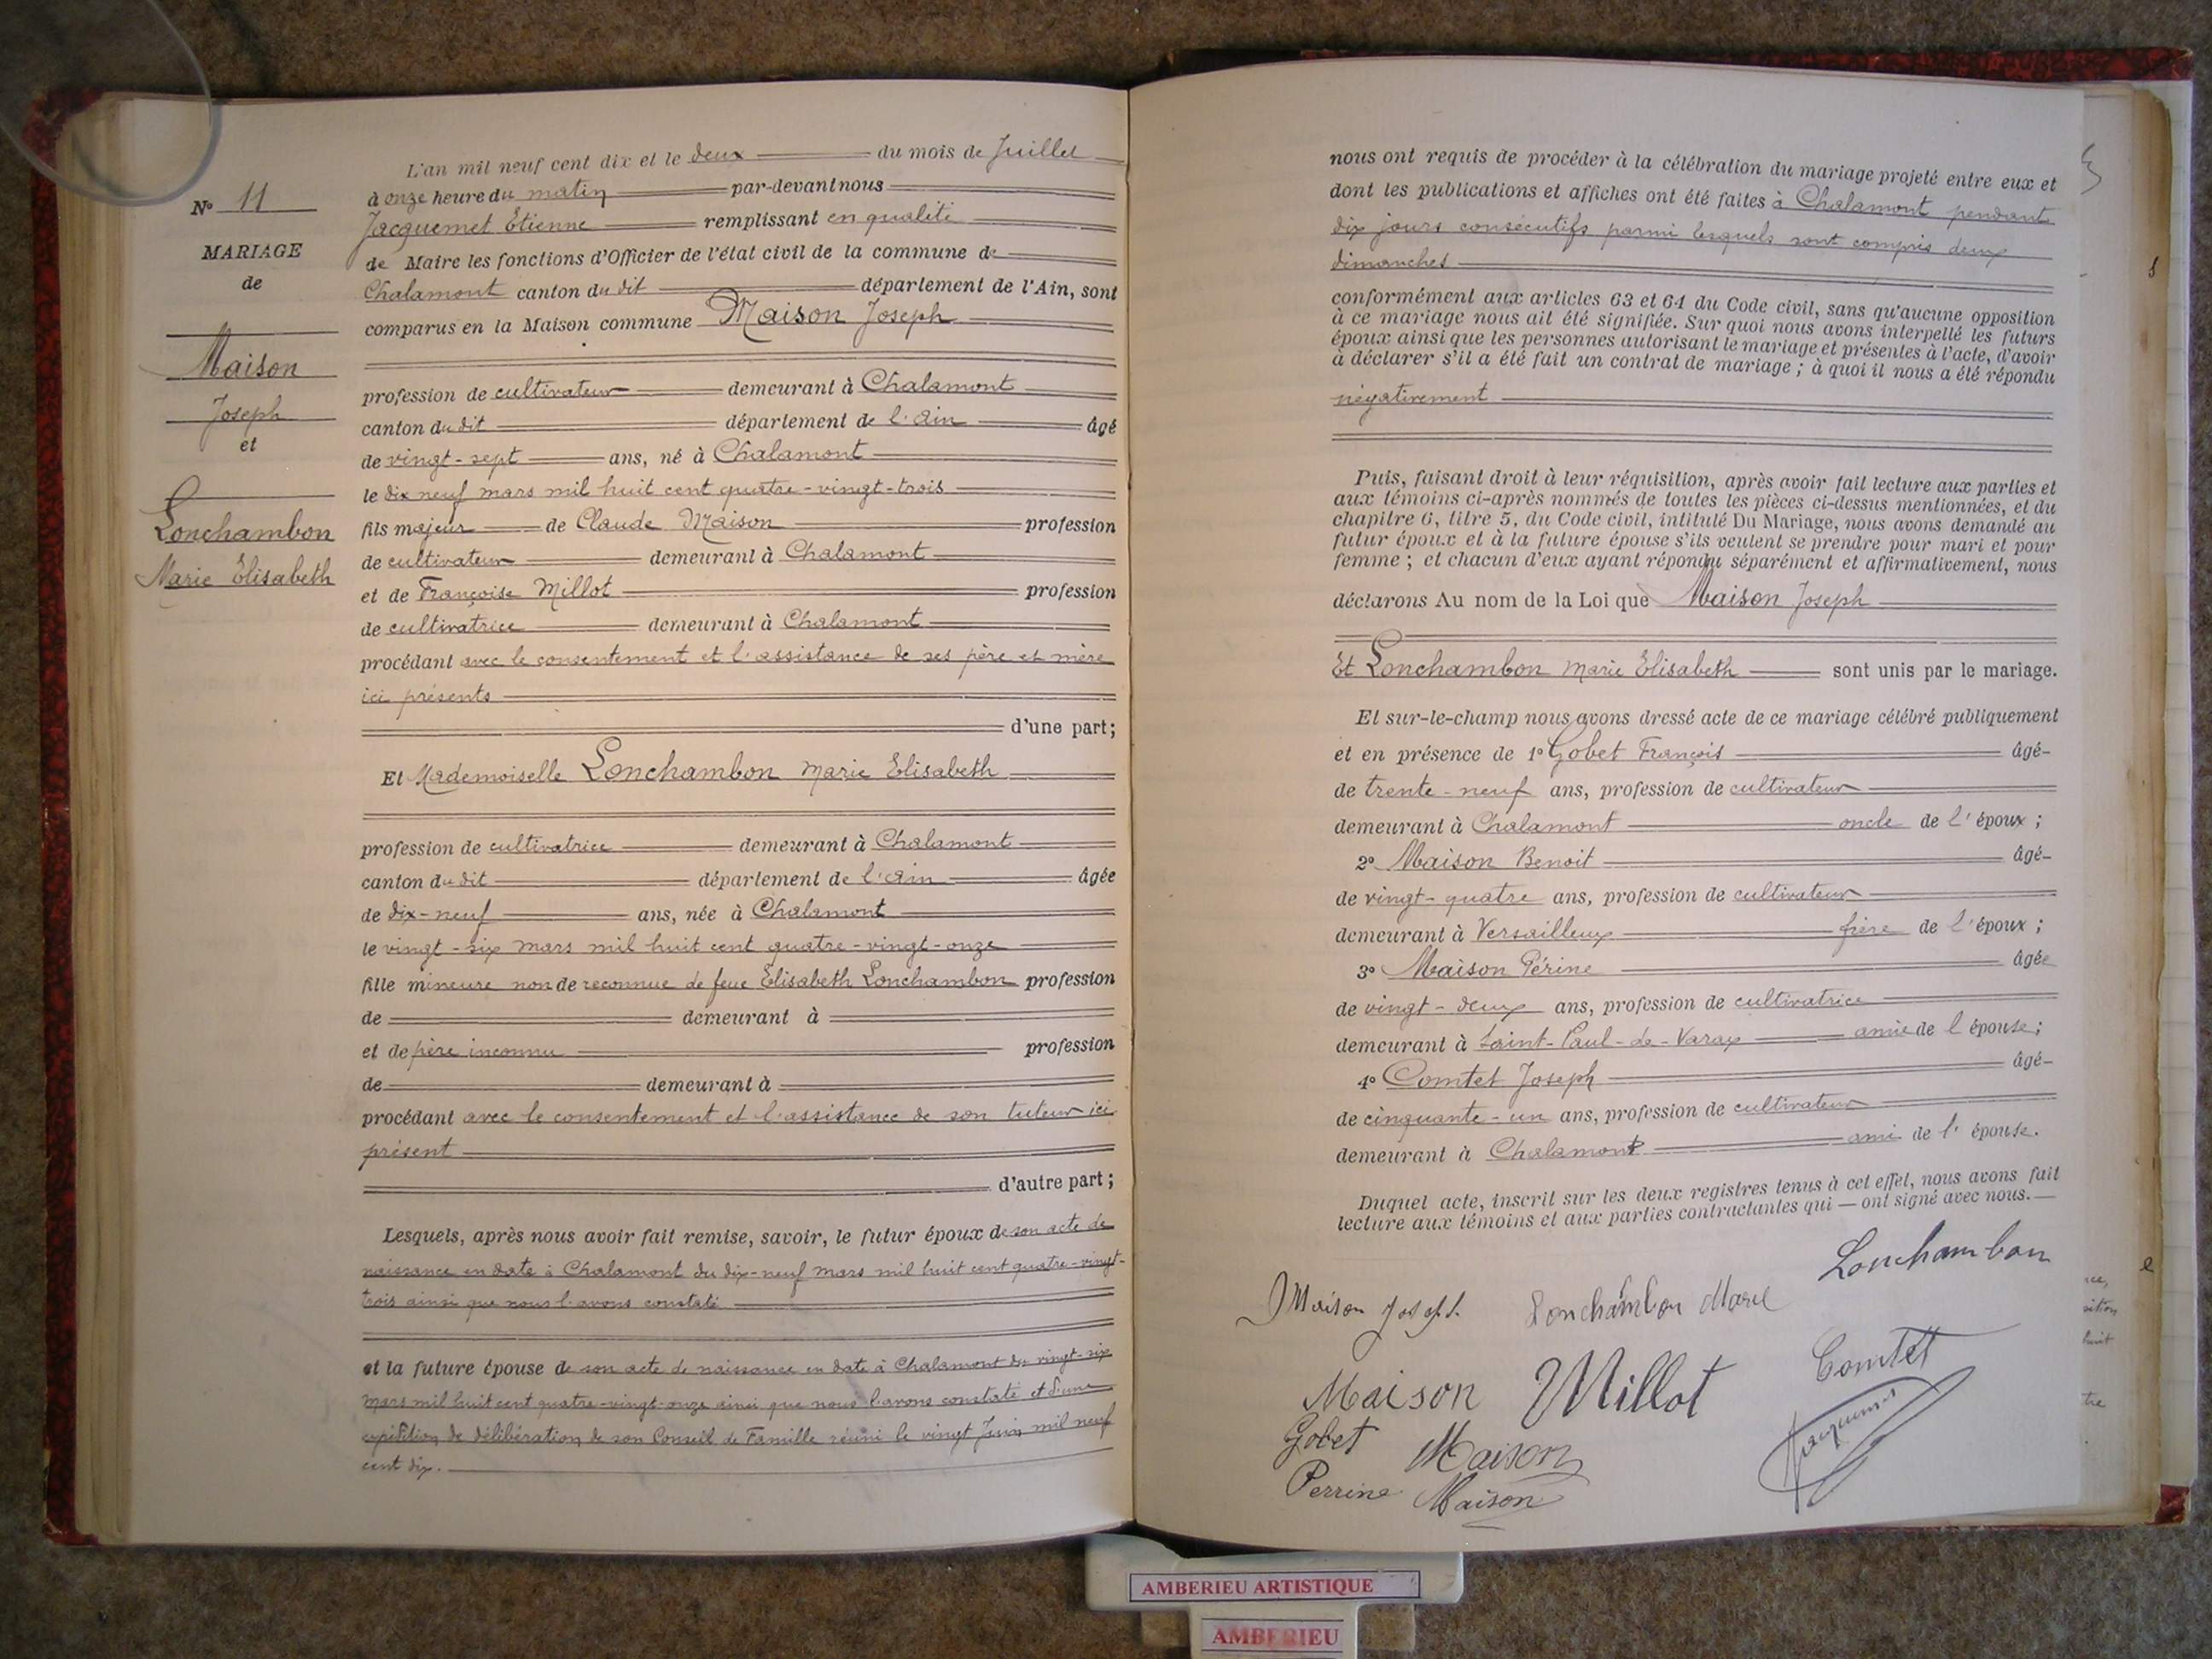 N° 11
MARIAGE
de
Maison
Joseph
et
Lonchambon
Marie Elisabeth
L'an mil neuf cent dix et le deux du mois de Juillet
à onze heure du matin par-devant nous
Jacquemet Etienne remplissant en qualité
de Maire les fonctions d'Officier de l'état civil de la commune de
Chalamont canton du dit département de l'Ain, sont
comparus en la Maison commune Maison Joseph
profession de cultivateur demeurant à Chalamont
canton du dit département de l'Ain âgé
de vingt-sept ans, né à Chalamont
le dix neuf mars mil huit cent quatre-vingt-trois
fils majeur de Claude Maison profession
de cultivateur demeurant à Chalamont
et de Françoise Millot profession
de cultivatrice demeurant à Chalamont
procédant avec le consentement et l'assistance de ses père et mère
ici présents
d'une part;
Et Mademoiselle Lonchambon Marie Elisabeth
profession de cultivatrice demeurant à Chalamont
canton du dit département de l'Ain âgée
de dix-neuf ans, née à Chalamont
le vingt-six mars mil huit cent quatre-vingt-onze
fille mineure non de reconnue de feue Elisabeth Lonchambon profession
de demeurant à
et de père inconnu profession
de demeurant à
procédant avec le consentement et l'assistance de son tuteur ici
présent
d'autre part;
Lesquels, après nous avoir fait remise, savoir, le futur époux de son acte de
naissance en date à Chalamont du dix-neuf mars mil huit cent quatre-vingt-
trois ainsi que nous l'avons constaté
et la future épouse de son acte de naissance en date à Chalamont du vingt-six
mars mil huit cent quatre-vingt-onze ainsi que nous l'avons constaté et d'une
expédition de délibération de son Conseil de Famille réuni le vingt Juin mil neuf
cent dix.
nous ont requis de procéder à la célébration du mariage projeté entre eux et
dont les publications et affiches ont été faites à Chalamont pendant
dix jours consécutifs parmi lesquels sont compris deux
dimanches
conformément aux articles 63 et 64 du Code civil, sans qu'aucune opposition
à ce mariage nous ait été signifiée. Sur quoi nous avons interpellé les futurs
époux ainsi que les personnes autorisant le mariage et présentes à l'acte, d'avoir
à déclarer s'il a été fait un contrat de mariage ; à quoi il nous a été répondu
négativement
Puis, faisant droit à leur réquisition, après avoir fait lecture aux parties et
aux témoins ci-après nommés de toutes les pièces ci-dessus mentionnées, et du
chapitre 6, titre 5, du Code civil, intitulé Du Mariage, nous avons demandé au
futur époux et à la future épouse s'ils veulent se prendre pour mari et pour
femme ; et chacun d'eux ayant répondu séparément et affirmativement, nous
déclarons Au nom de la Loi que Maison Joseph
Et Lonchambon Marie Elisabeth sont unis par le mariage.
Et sur-le-champ nous avons dressé acte de ce mariage célébré publiquement
et en présence de 1° Gobet François âgé
de trente-neuf ans, profession de cultivateur
demeurant à Chalamont oncle de l'époux ;
2° Maison Benoit âgé
de vingt-quatre ans, profession de cultivateur
demeurant à Versailleux frère de l'époux ;
3° Maison Périne âgée
de vingt-deux ans, profession de cultivatrice
demeurant à Saint-Paul-de-Varax amie de l'épouse;
4° Comtet Joseph âgé
de cinquante-un ans, profession de cultivateur
demeurant à Chalamont ami de l'épouse.
Duquel acte, inscrit sur les deux registres tenus à cet effet, nous avons fait
lecture aux témoins et aux parties contractantes qui — ont signé avec nous. —
Lonchambon
Maison Joseph Lonchambon Marie
Comtet
Maison Millot
Gobet Maison Jacquemet
Perrine Maison
AMBERIEU ARTISTIQUE
AMBERIEU